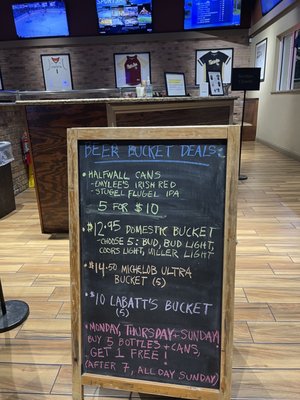 BEER BUCKET DEALS:
• HALFWALL CANS
- EMYLEE'S IRISH RED
- STUGEL FLUGEL IPA
5 FOR $10
• $12.95 DOMESTIC BUCKET
- CHOOSE 5: BUD, BUD LIGHT,
COORS LIGHT, MILLER LIGHT
• $14.50 MICHELOB ULTRA
BUCKET (5)
• $10 LABATT'S BUCKET
(5)
• MONDAY, THURSDAY + SUNDAY
BUY 5 BOTTLES + CANS,
GET 1 FREE!
(AFTER 7, ALL DAY SUNDAY)